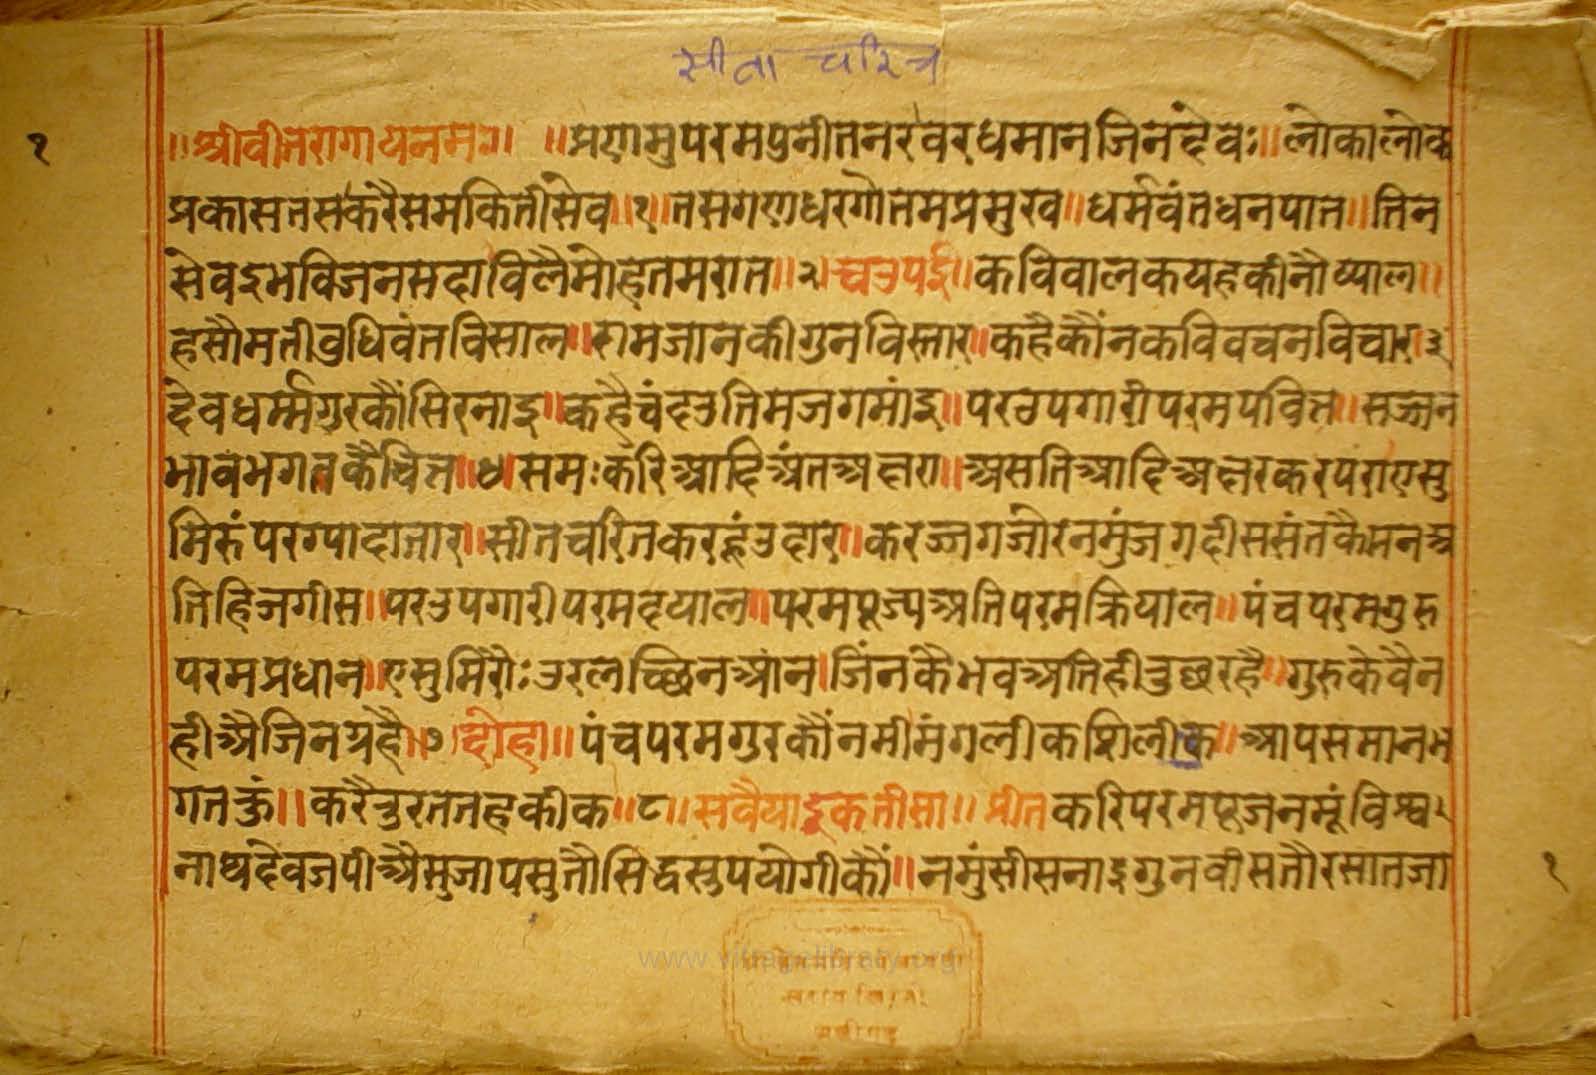 सीता चरित्र
१
॥श्रीवीतरागायनमः॥ ॥प्रणमुपरमपुनीतनरवरधमानजिनदेवः॥लोकालोक
प्रकासतसकरैसमकितीसेव॥१॥तसगणधरगौतमप्रमुख॥धर्मवंतधनपात॥तिन
सेवइभविजनसदाविलैमोहतमरात॥२॥चउपई॥कविवालकयहकीनौष्याल॥
हसौमतीवुधिवंतविसाल॥रामजानकीगुनविस्तार॥कहैकौंनकविवचनविचार॥३
देवधर्म्मगुरकौंसिरनाइ॥कहैचंदउतिमजगमांइ॥परउपगारीपरमपवित्त॥सज्जन
भावभगतकैचित्त॥४॥समःकरिआदिअंतअक्षरा॥असतिआदिअक्षरकरपराएसु
मिरुंपरग्यादातार॥सीतचरितकरहूंउदार॥करज्जगजोरनमुंजगदीससंतकैमनअ
तिहिजगीस॥परउपगारीपरमदयाल॥परमपूज्यअतिपरमक्रिपाल॥पंचपरमगुरु
परमप्रधान॥एसुमिरौःउरलच्छिनआंन।जिंनकैभवअतिहीतुछरहै॥गुरुकेवैन
हीअैजिनग्रहै॥७॥दोहा॥पंचपरमगुरकौंनमीमंगलीकशिलीक॥आपसमानभ
गतकुं॥करैतुरततहकीक॥८॥सवैयाइकतीसा॥प्रीतकरिपरमपूजनमूंविश्व
नाथदेवजपीअैसुजापसुतौसिद्धरूपयोगीकौं॥नमुंसीसनाइगुनवीसतौरसातजा
१
www.vitragelibrary.org